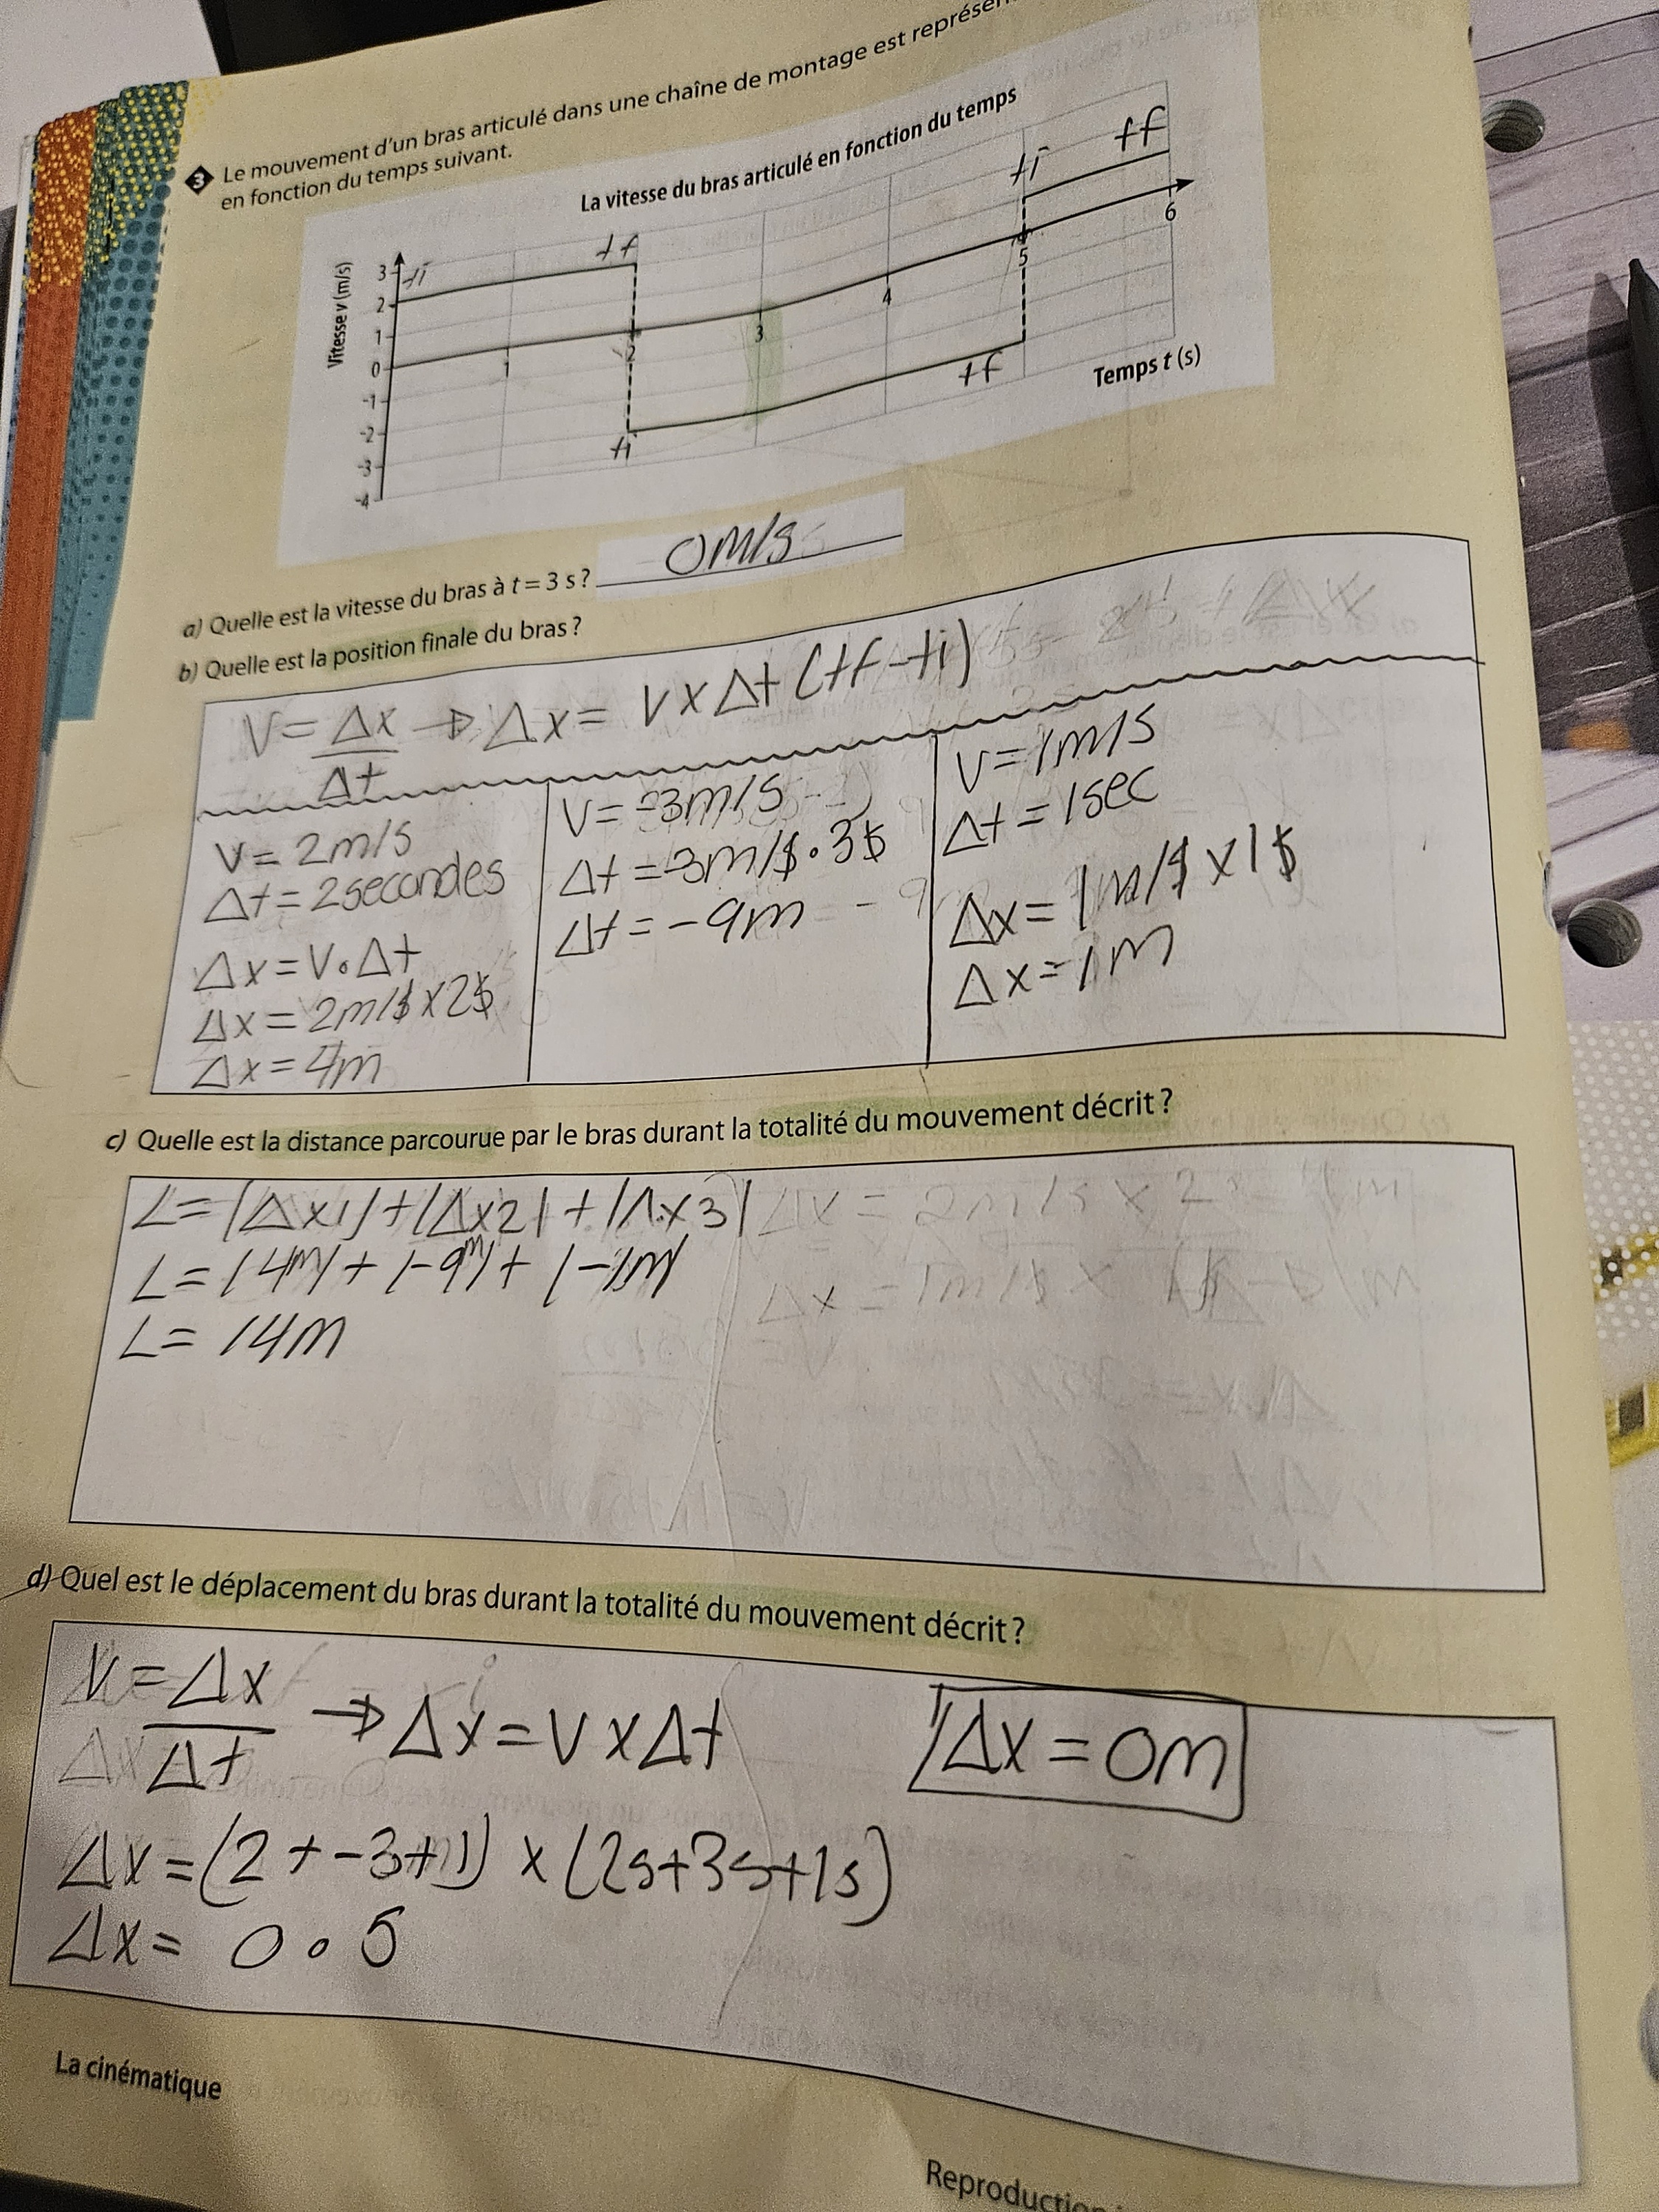 3 Le mouvement d'un bras articulé dans une chaîne de montage est
en fonction du temps suivant.
La vitesse du bras articulé en fonction du temps
Vitesse v (m/s)
3
2
1
0
-1
-2
-3
-4
1
2
3
4
5
6
ti
tf
ti
tf
ti
tf
Temps t (s)
a) Quelle est la vitesse du bras à t = 3 s ? 0m/s
b) Quelle est la position finale du bras ?
V = Δx/Δt → Δx = V x Δt (tf - ti)
V = 2m/s
Δt = 2 secondes
Δx = V • Δt
Δx = 2m/s x 2s
Δx = 4m
V = -3m/s
Δt = -3m/s • 3s
Δt = -9m
V = 1m/s
Δt = 1 sec
Δx = 1m/s x 1s
Δx = 1m
c) Quelle est la distance parcourue par le bras durant la totalité du mouvement décrit ?
L = |Δx1| + |Δx2| + |Δx3|
L = |4m| + |-9m| + |-1m|
L = 14m
d) Quel est le déplacement du bras durant la totalité du mouvement décrit ?
V = Δx/Δt → Δx = V x Δt
Δx = 0m
Δx = (2 + -3 + 1) x (2s + 3s + 1s)
Δx = 0 • 5
La cinématique